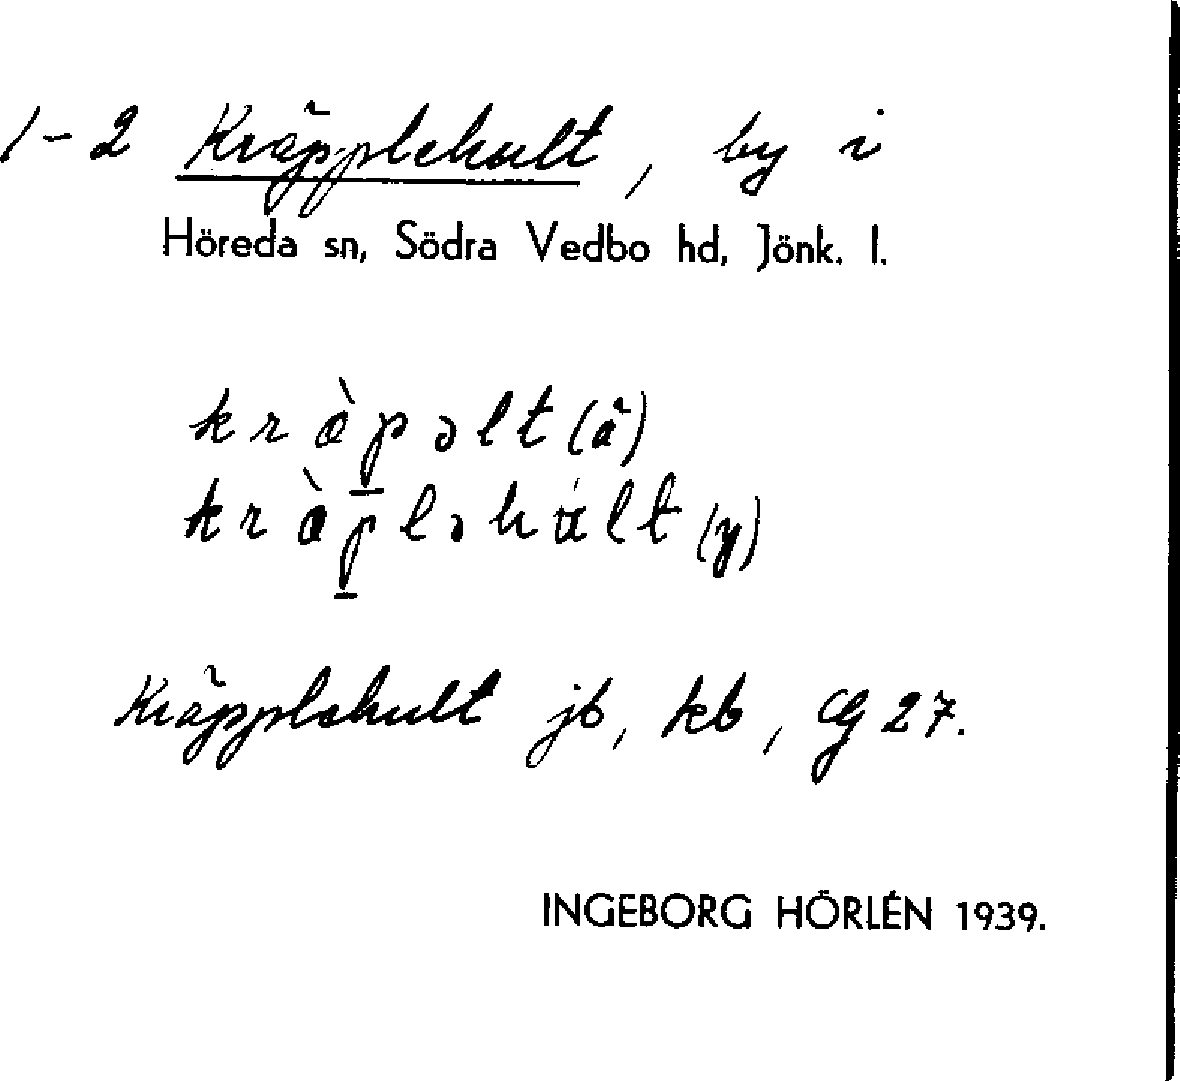 1-2 Kräpplehult, by i
Höreda sn, Södra Vedbo hd, Jönk. l.
kræ̀p̱əlt (ä)
kræ̀p̱ləhúlt (y)
Kräpplehult jb, kb, GG 27.
INGEBORG HÖRLÉN 1939.